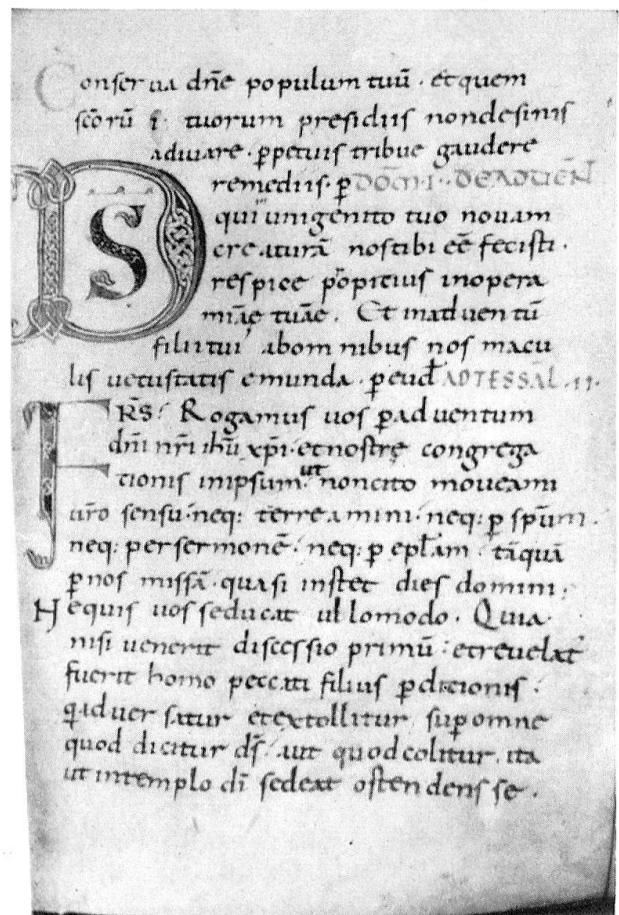 Conserua dn̄e populum tuū · et quem
sc̄orū i· tuorum presidiis non desinis
adiuuare · p̱petuis tribue gaudere
remediis · p̱ DOM̄ I · DE ADUEN̄
DS qui unigenito tuo nouam
creaturā nos tibi eē fecisti ·
respice p̱opitius in opera
mīae tuae · Et in aduentū
filii tui ab omnibus nos macu
lis uetustatis emunda · p̱ eund̄ AD TESSAL̄ · II ·
FRS̄ · Rogamus uos p̱ aduentum
dn̄i nr̄i ihū xp̄i · et nostrę congrega
tionis in ipsum · ut non cito moueami
ur̄o sensu · neq: terreamini · neq: p̱ sp̄um ·
neq: per sermonē · neq: p̱ epl̄am · tāquā
p̱ nos missā · quasi instet dies domini ·
Nequis uos seducat ullo modo · Quia
nisi uenerit discessio primū · et reuelat᷑
fuerit homo peccati filius p̱ditionis ·
q̄ aduersatur et extollitur sup̱ omne
quod dicitur ds̄ · aut quod colitur · ita
ut in templo dī sedeat ostendens se ·